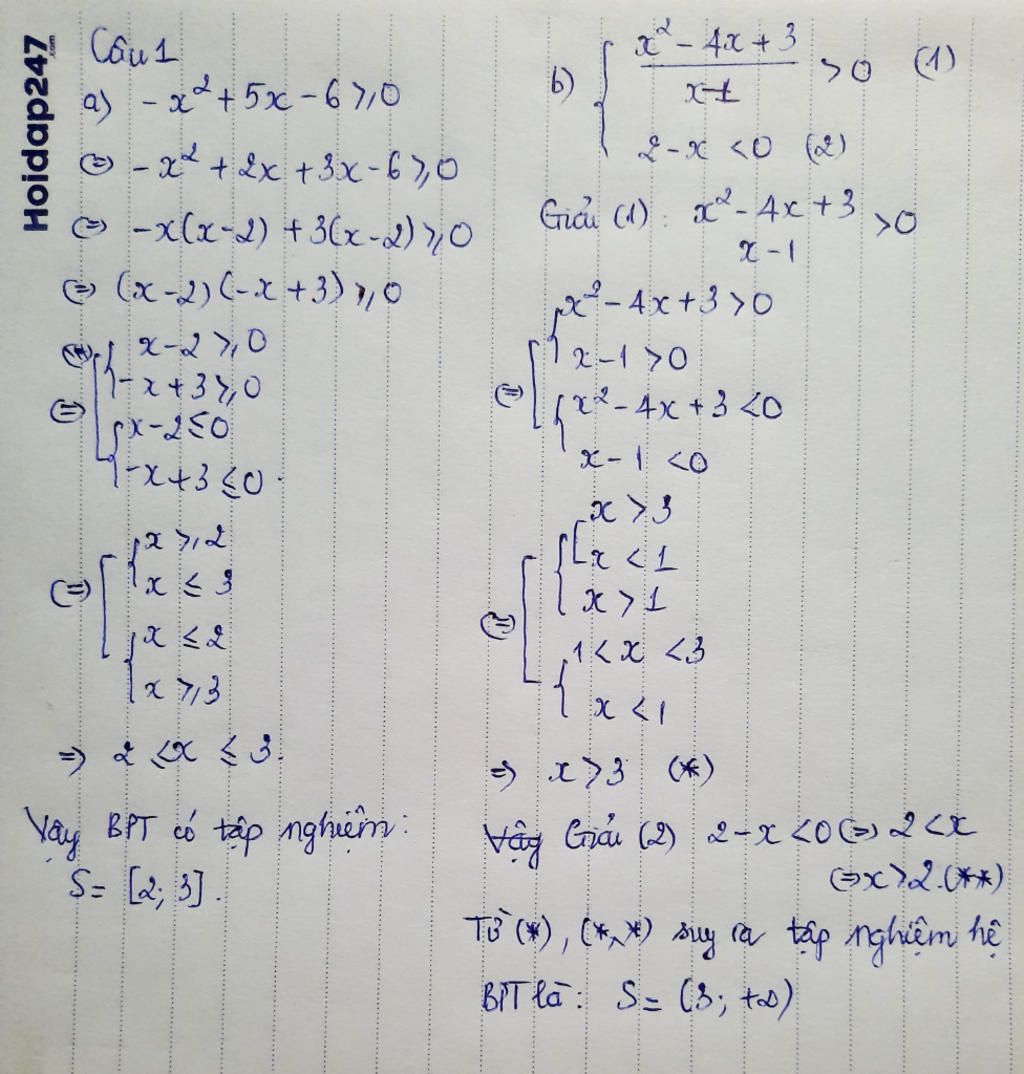 Hoidap247.com
Câu 1
a) -x² + 5x - 6 ⩾ 0
(=) -x² + 2x + 3x - 6 ⩾ 0
(=) -x(x-2) + 3(x-2) ⩾ 0
(=) (x-2)(-x+3) ⩾ 0
x-2 ⩾ 0
-x+3 ⩾ 0
(=)
x-2 ≤ 0
-x+3 ≤ 0.
x ⩾ 2
(=) x ≤ 3
x ≤ 2
x ⩾ 3
=) 2 ≤ x ≤ 3.
Vậy BPT có tập nghiệm:
S = [2; 3].
b) { x² - 4x + 3
x-1
>0 (1)
2-x <0 (2)
Giải (1): x² - 4x + 3
x-1
>0
x² - 4x + 3 > 0
x-1 > 0
(=)
x² - 4x + 3 < 0
x-1 < 0
x > 3
x < 1
x > 1
(=)
1 < x < 3
x < 1
=) x > 3 (*)
Vậy Giải (2) 2-x < 0 (=) 2 < x
(=) x > 2. (**)
Từ (*), (**) suy ra tập nghiệm hệ
BPT là: S = (3; +∞)